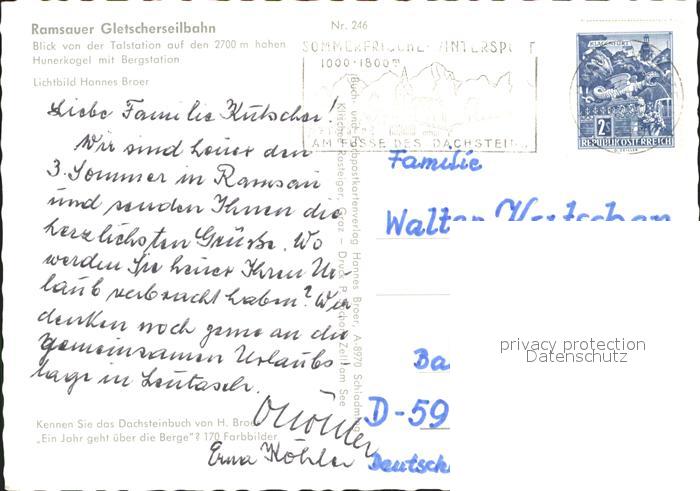 Ramsauer Gletscherseilbahn
Blick von der Talstation auf den 2700 m hohen
Hunerkogel mit Bergstation
Lichtbild Hannes Broer
Nr. 246
SOMMERFRISCHE-WINTERSPORT
1000-1800m
AM FUSSE DES DACHSTEIN
KLAGENFURT
2S
REPUBLIK ÖSTERREICH
Liebe Familie Kutscher!
Wir sind heuer den
3. Sommer in Ramsau
und senden Ihnen die
herzlichsten Grüße. Wo
werden Sie heuer Ihren Ur-
laub verbracht haben? Wir
denken noch gerne an die
gemeinsamen Urlaubs-
tage in Leutasch.
Erna Köhler
Buch- und Kunstpostkartenverlag Hannes Broer, A-8970 Schladming
Graz – Druck Zell am See
Kennen Sie das Dachsteinbuch von H. Broer
„Ein Jahr geht über die Berge"? 170 Farbbilder
Familie
Walter Kutscher
Ba
D-59
Deutsch
privacy protection
Datenschutz